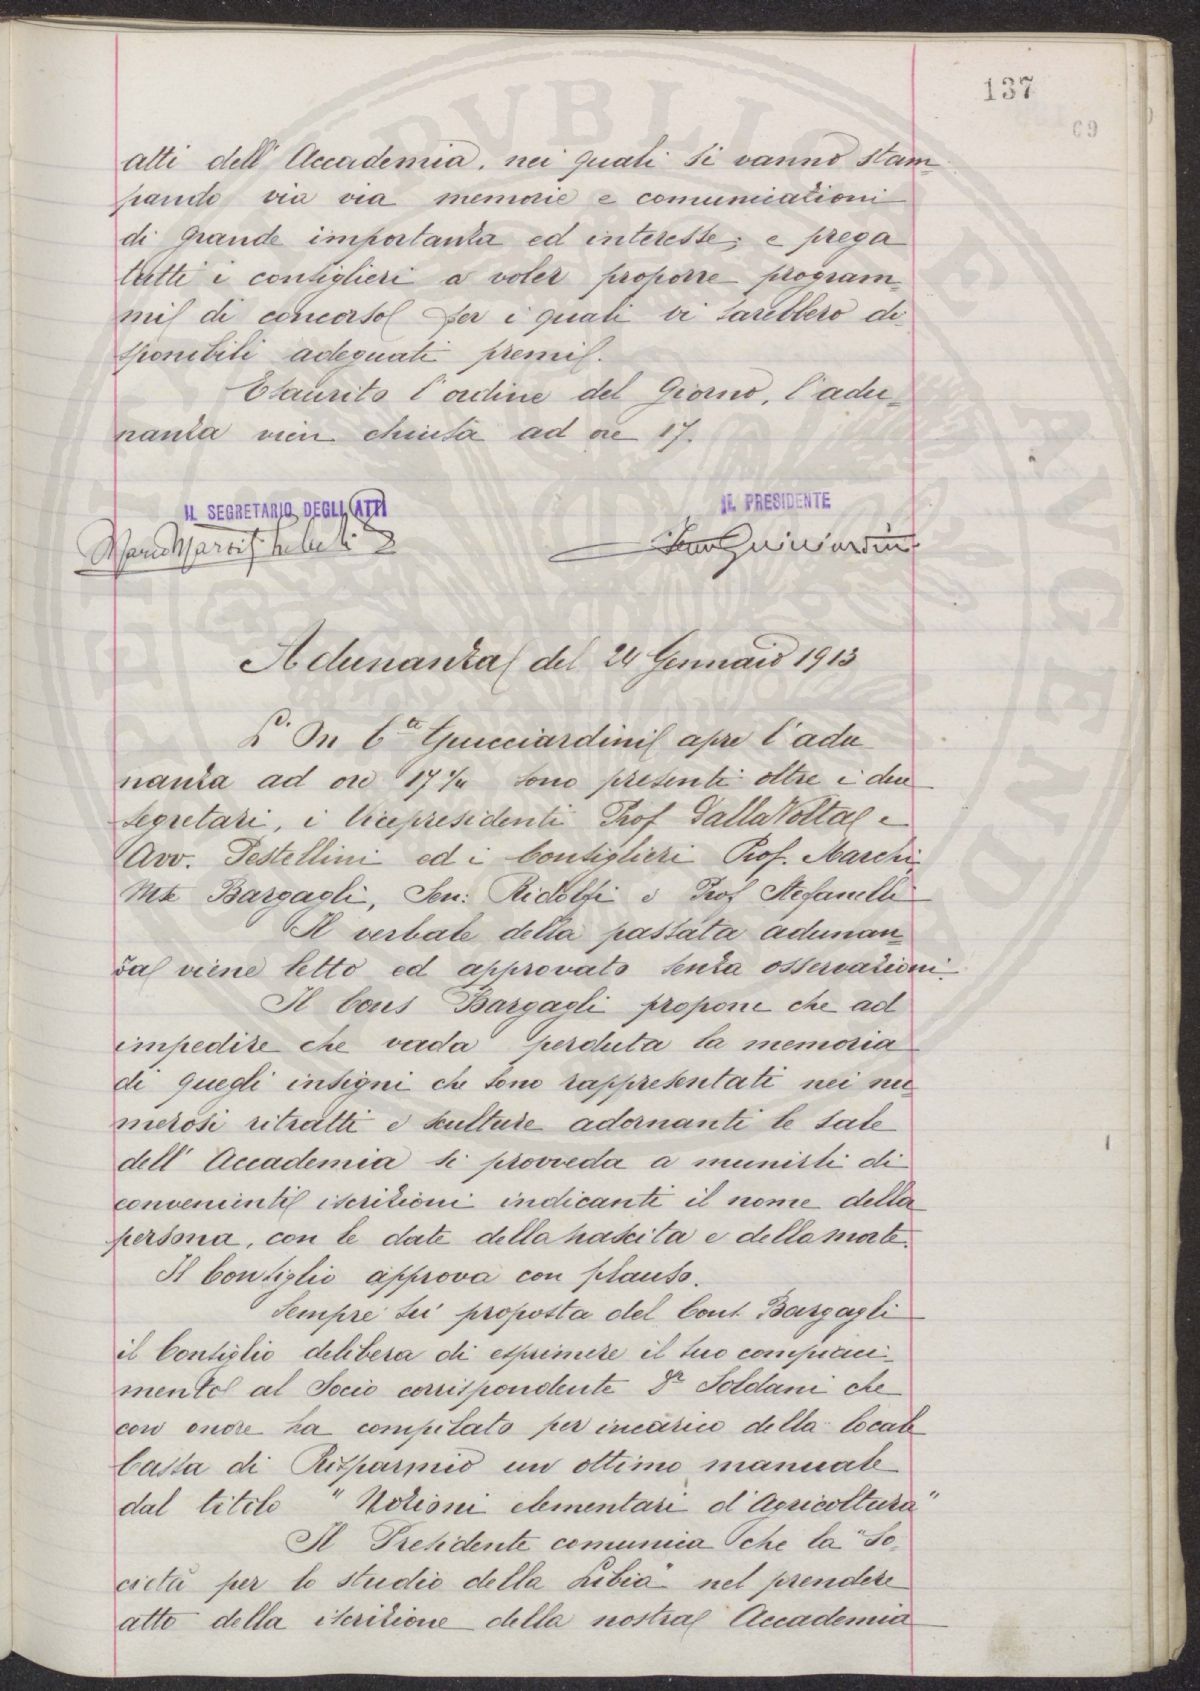 137
69
atti dell'Accademia, nei quali si vanno stam-
pando via via memorie e comunicazioni
di grande importanza ed interesse; e prega
tutti i consiglieri a voler proporre program-
mi di concorso per i quali vi sarebbero di-
sponibili adeguati premi.
Esaurito l'ordine del Giorno, l'adu-
nanza vien chiusa ad ore 17.
IL SEGRETARIO DEGLI ATTI
IL PRESIDENTE
Guicciardini
Adunanza del 24 Gennaio 1913
L'On Cte Guicciardini apre l'adu
nanza ad ore 17 1/4 sono presenti oltre i due
segretari, i Vicepresidenti Prof Dalla Volta e
Avv. Pestellini ed i Consiglieri Prof. Marchi,
Mse Bargagli, Sen: Ridolfi e Prof Stefanelli
Il verbale della passata adunan-
za viene letto ed approvato senza osservazioni.
Il Cons Bargagli propone che ad
impedire che vada perduta la memoria
di quegli insigni che sono rappresentati nei nu-
merosi ritratti e sculture adornanti le sale
dell'Accademia si provveda a munirli di
convenienti iscrizioni indicanti il nome della
persona, con le date della nascita e della morte.
Il Consiglio approva con plauso.
Sempre su proposta del Cons. Bargagli
il Consiglio delibera di esprimere il suo compiaci-
mento al Socio corrispondente Dr Soldani che
con onore ha compilato per incarico della locale
Cassa di Risparmio un ottimo manuale
dal titolo "Nozioni elementari d'Agricoltura"
Il Presidente comunica che la "So-
cietà per lo studio della Libia" nel prendere
atto della iscrizione della nostra Accademia